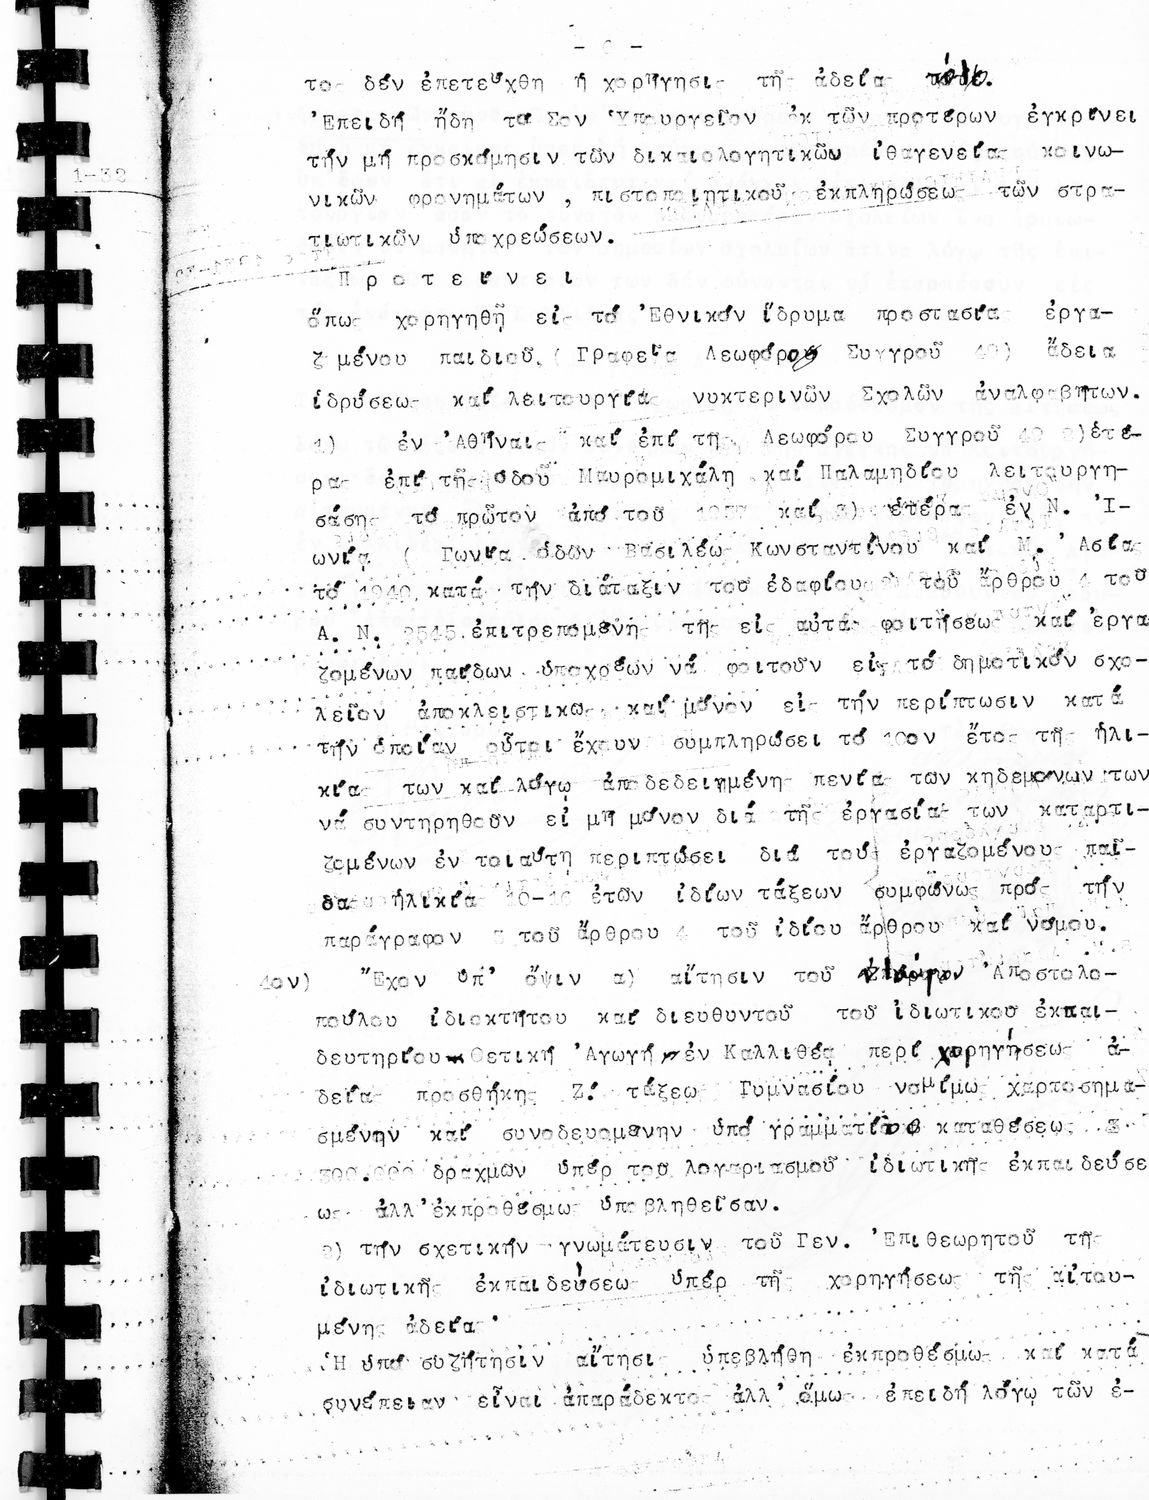 τος δέν ἐπετεύχθη ἡ χορήγησις τῆς ἀδείας
Ἐπειδή ἤδη τό Σον Ὑπουργεῖον ἐκ τῶν προτέρων ἐγκρίνει
τήν μή προσκόμησιν τῶν δικαιολογητικῶν ἰθαγενείας κοινω-
νικῶν φρονημάτων , πιστοποιητικοῦ ἐκπληρώσεως τῶν στρα-
τιωτικῶν ὑποχρεώσεων.
Π ρ ο τ ε ί ν ε ι
ὅπως χορηγηθῇ εἰς τό Ἐθνικόν ἵδρυμα προστασίας ἐργα-
ζ μένου παιδιοῦ ( Γραφεῖα Λεωφόρου Συγγροῦ 40) ἄδεια
ἱδρύσεως καί λειτουργίας νυκτερινῶν Σχολῶν ἀναλφαβήτων.
1) ἐν Ἀθήναις καί ἐπί τῆς Λεωφόρου Συγγροῦ 40 2)ἑτέ-
ρας ἐπί τῆς ὁδοῦ Μαυρομιχάλη καί Παλαμηδίου λειτουργη-
σάσης τό πρῶτον ἀπό τοῦ καί 3) ἑτέρας ἐν Ν. Ἰ-
ωνίᾳ ( Γωνία ὁδῶν Βασιλέως Κωνσταντίνου καί Μ. Ἀσίας
τό 1940 κατά τήν διάταξιν τοῦ ἐδαφίου τοῦ ἄρθρου 4 τοῦ
Α. Ν. 2545 ἐπιτρεπομένης τῆς εἰς αὐτάς φοιτήσεως καί ἐργα
ζομένων παίδων ὑποχρέων νά φοιτοῦν εἰς τό δημοτικόν σχο-
λεῖον ἀποκλειστικῶς καί μόνον εἰς τήν περίπτωσιν κατά
τήν ὁποίαν οὗτοι ἔχουν συμπληρώσει τό 10ον ἔτος τῆς ἡλι-
κίας των καί λόγῳ ἀποδεδειγμένης πενίας τῶν κηδεμόνων των
νά συντηρηθοῦν εἰ μή μόνον διά τῆς ἐργασίας των καταρτι-
ζομένων ἐν τοιαύτῃ περιπτώσει διά τούς ἐργαζομένους παῖ-
δας ἡλικίας 10-16 ἐτῶν ἰδίων τάξεων συμφώνως πρός τήν
παράγραφον 3 τοῦ ἄρθρου 4 τοῦ ἰδίου ἄρθρου καί νόμου.
4ον) Ἔχον ὑπ' ὄψιν α) αἴτησιν τοῦ Ἀποστολο-
πούλου ἰδιοκτήτου καί διευθυντοῦ τοῦ ἰδιωτικοῦ ἐκπαι-
δευτηρίου Θετική Ἀγωγή ἐν Καλλιθέᾳ περί χορηγήσεως ἀ-
δείας προσθήκης Ζ! τάξεως Γυμνασίου νομίμως χαρτοσημα-
σμένην καί συνοδευομένην ὑπό γραμματίου καταθέσεως
300.000 δραχμῶν ὑπέρ τοῦ λογαριασμοῦ ἰδιωτικῆς ἐκπαιδεύσε
ως ἀλλ' ἐκπροθέσμως ὑποβληθεῖσαν.
β) τήν σχετικήν γνωμάτευσιν τοῦ Γεν. Ἐπιθεωρητοῦ τῆς
ἰδιωτικῆς ἐκπαιδεύσεως ὑπέρ τῆς χορηγήσεως τῆς αἰτου-
μένης ἀδείας
Ἡ ὑπό συζήτησιν αἴτησις ὑπεβλήθη ἐκπροθέσμως καί κατά
συνέπειαν εἶναι ἀπαράδεκτος ἀλλ' ὅμως ἐπειδή λόγῳ τῶν ἐ-